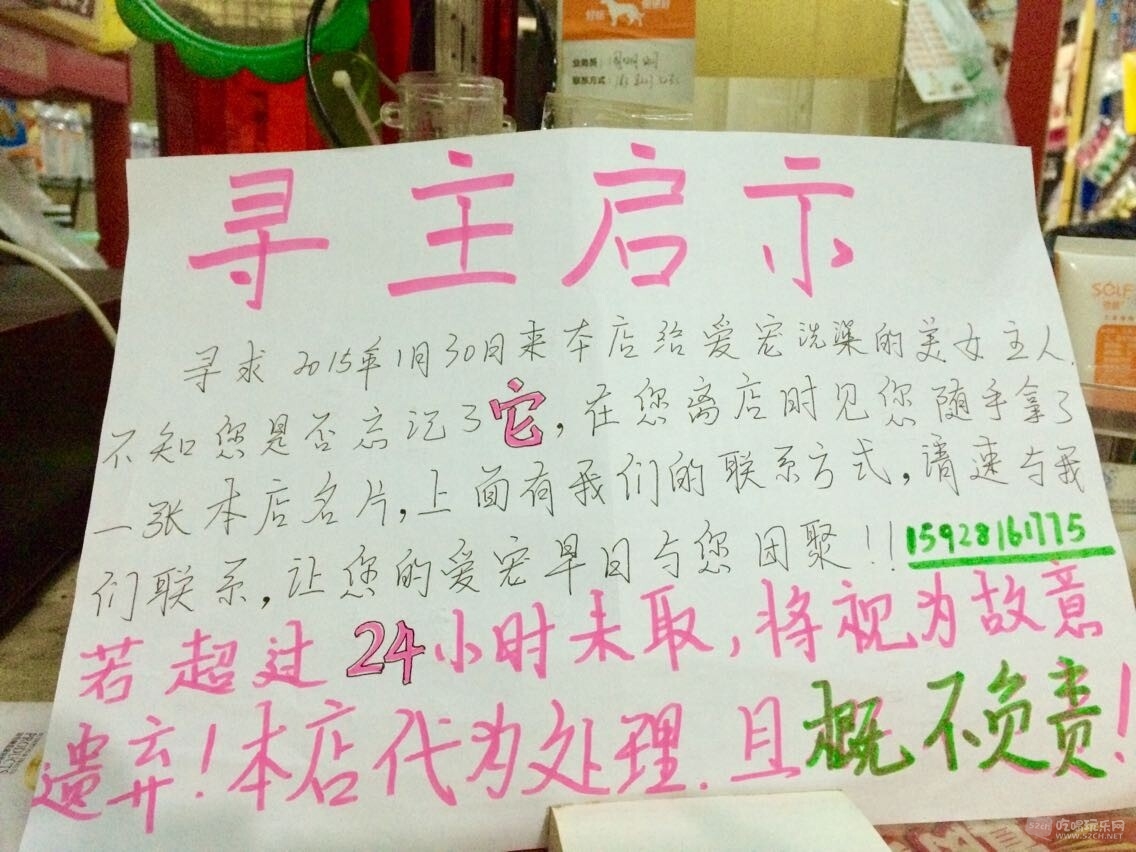 业务员：
联系方式：
寻主启示
寻求2015年1月30日来本店给爱宠洗澡的美女主人.
不知您是否忘记了它,在您离店时见您随手拿了
一张本店名片,上面有我们的联系方式,请速与我
们联系,让您的爱宠早日与您团聚!!15928161775
若超过24小时未取,将视为故意
遗弃!本店代为处理.且概不负责!
SOLF
吃喝玩乐网
WWW.52CH.NET